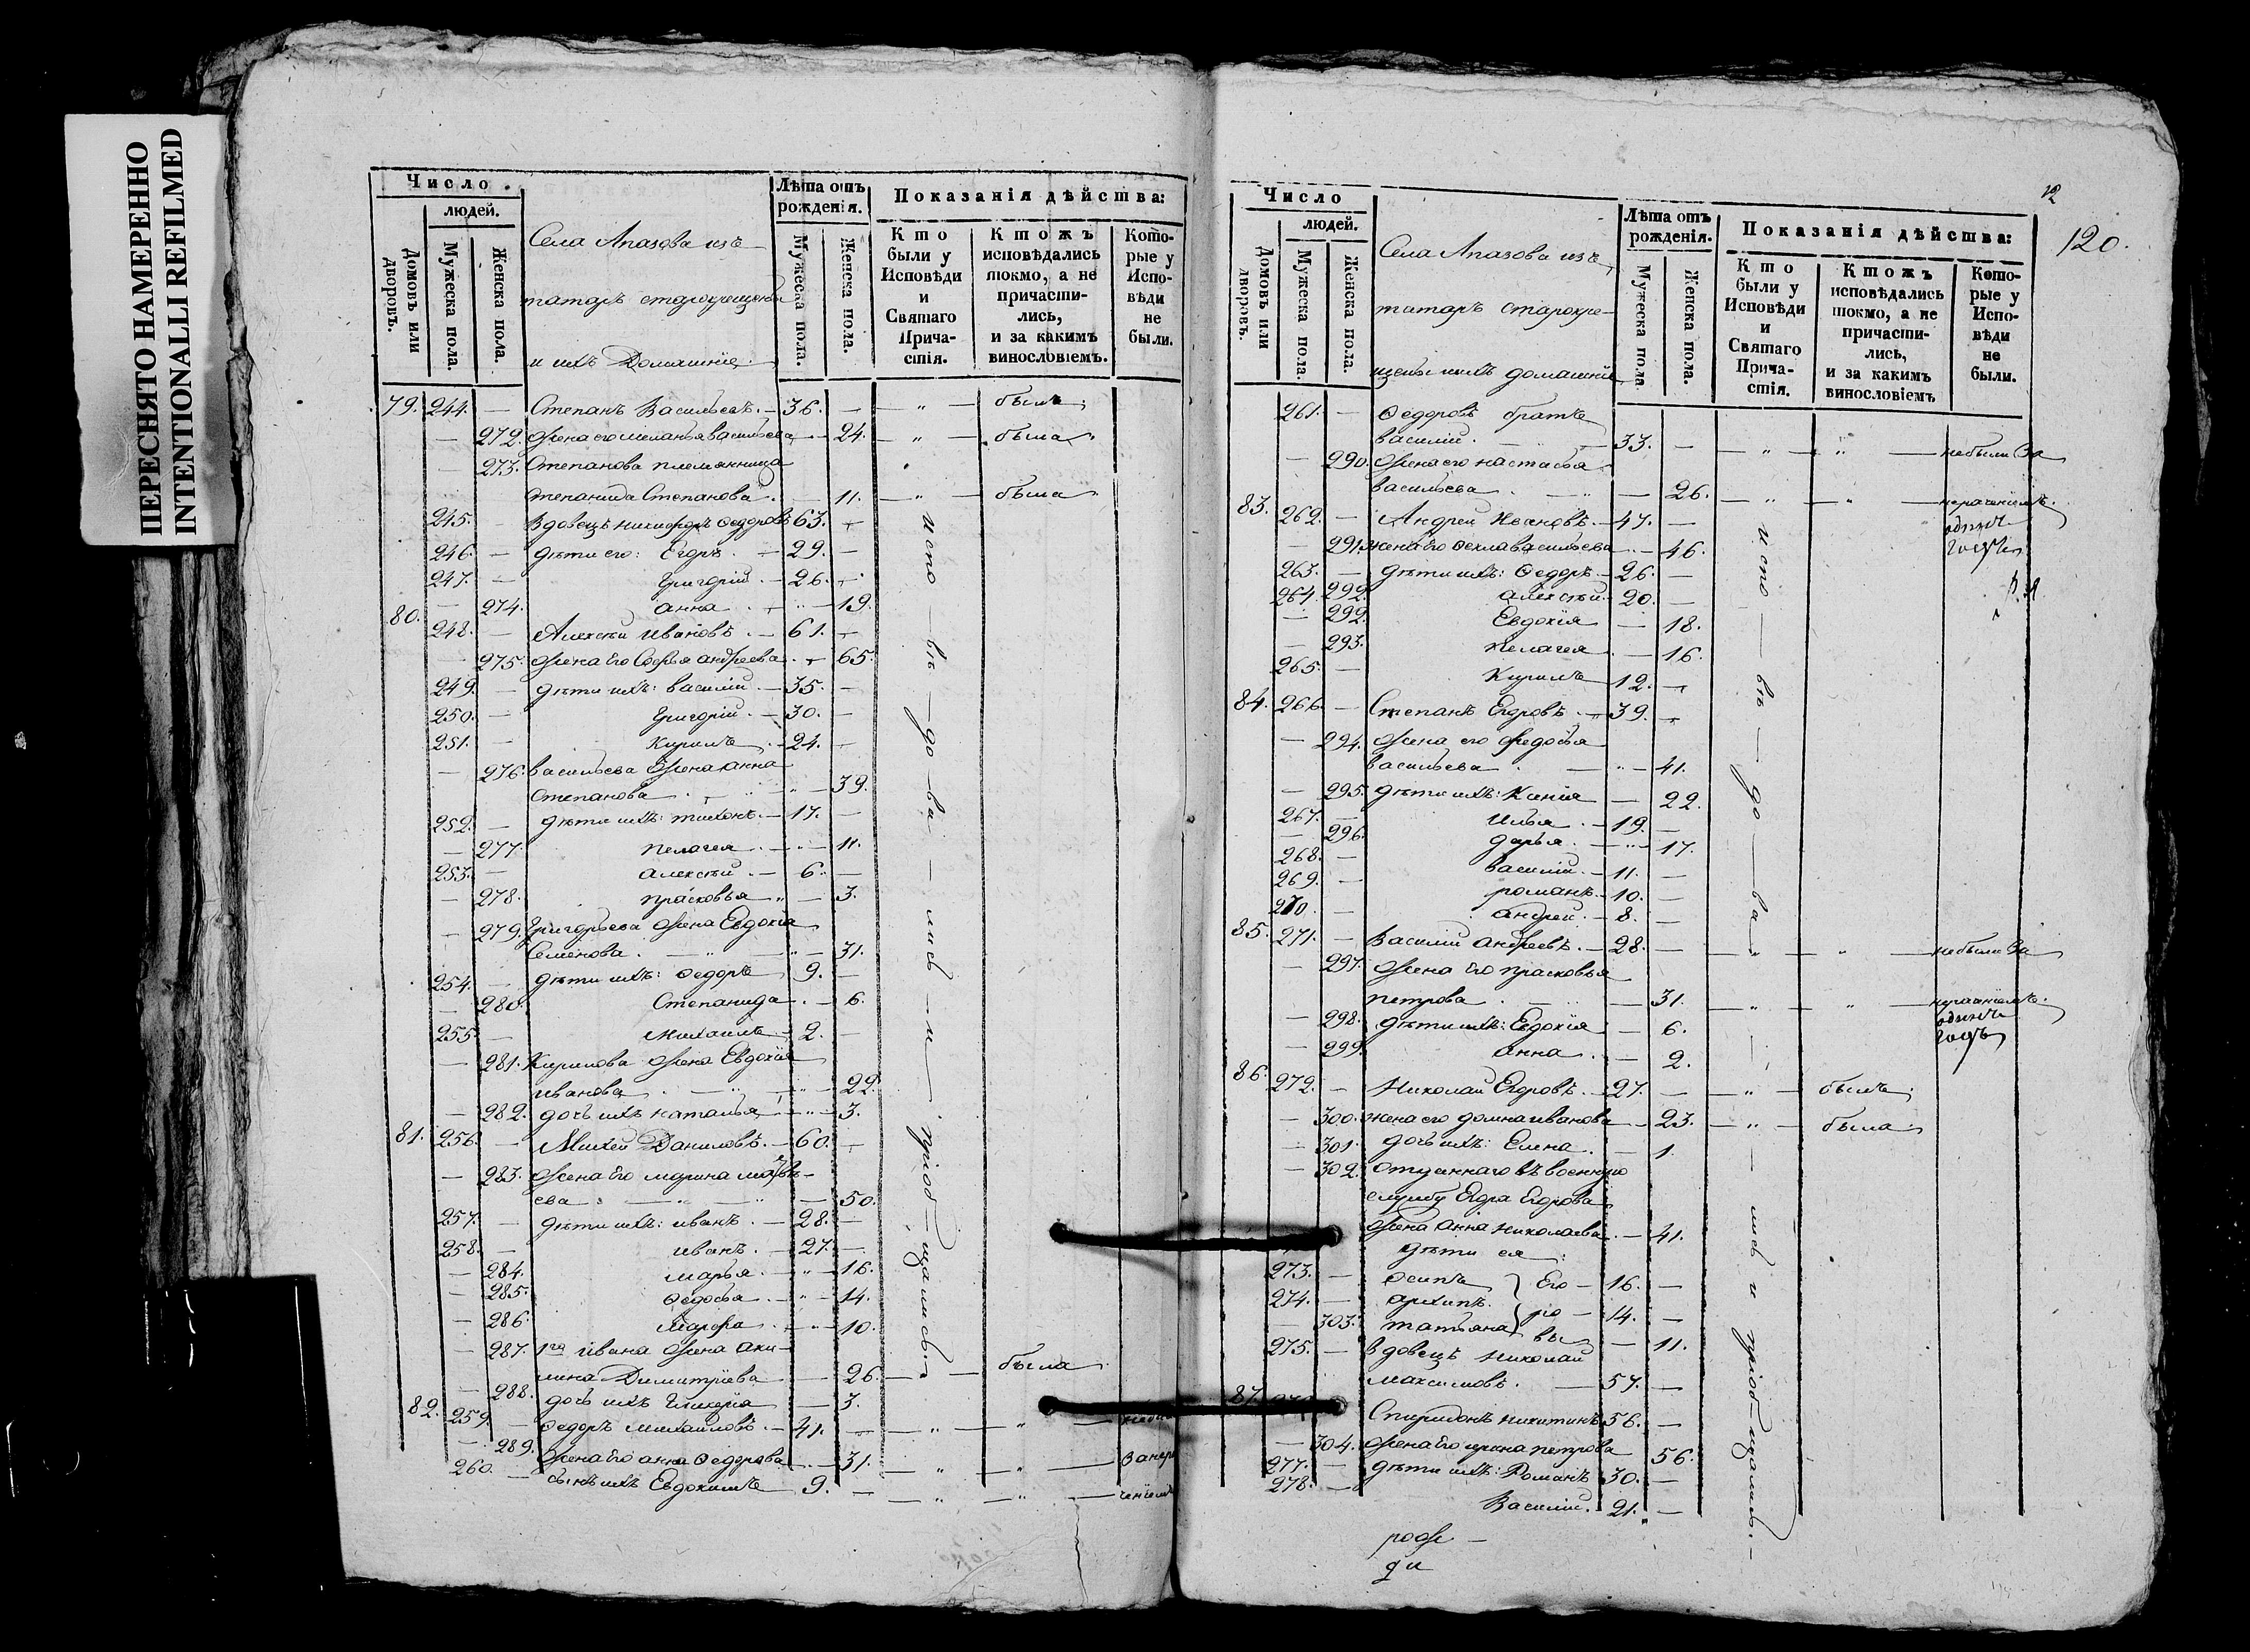 ПЕРЕСНЯТО НАМЕРЕННО
INTENTIONALLI REFILMED
Число
людей.
Домовъ или дворовъ.
Мужеска пола.
Женска пола.
Села Апазова изъ
татаръ старокрещены
и ихъ Домашніе:
Лѣта отъ рожденія.
Мужеска пола.
Женска пола.
Показанія дѣйства:
Кто были у Исповѣди и Святаго Причастія.
Ктожъ исповѣдались токмо, а не причастились, и за какимъ винословіемъ.
Которые у Исповѣди не были.
79. 244. — Степанъ Васильевъ. — 36. — — „ — былъ.
— 272. Жена его Меланья Васильева — 24. — „ — была.
— 273. Степанова племянница
Степанида Степанова. — 11. — „ — была.
245. Вдовецъ Никифоръ Федоровъ 63. —
246. — дѣти его: Егоръ. — 29. —
247. — Григорій. — 26. —
— 274. Анна. — „ — 19.
80. 248. — Алексѣй Ивановъ. — 61. —
— 275. Жена Его Софья Андреева. — 65.
249. — дѣти ихъ: Василій. — 35. —
250. — Григорій. — 30. —
251. — Кирилъ. — 24. —
— 276. Васильева Жена Анна
Степанова. — „ — 39.
252. — дѣти ихъ: Тихонъ. — 17. —
— 277. Пелагея. — „ — 11.
253. — Алексѣй. — 6. —
— 278. Прасковья „ — 3.
— 279. Григорьева Жена Евдокія
Семенова. — „ — „ — 31.
254. — дѣти ихъ: Федоръ 9. —
— 280. Степанида. — 6.
255. — Михаилъ. — 2. —
— 281. Кирилова Жена Евдокія
Иванова. — „ — „ — 22.
— 282. дочь ихъ Наталья „ — 3.
81. 256. — Михей Даниловъ. — 60. —
— 283. Жена Его Марина Матвѣ-
ева — „ — „ — 50.
257. — дѣти ихъ: Иванъ. — 28. —
258. — Иванъ. — 27. —
— 284. Марья. — „ — 16.
— 285. Федосья. — „ — 14.
— 286. Марфа. — „ — 10.
— 287. 1го Ивана Жена Аки-
лина Димитріева — 26. — была.
— 288. дочь ихъ Гликерія — 3.
82. 259. — Федоръ Михаиловъ. — 41. — — „ — „ —
— 289. Жена Его Анна Федорова. — 31. — „ — „ — за нера
260. — сынъ ихъ Евдокимъ 9. — — „ — „ — ченіемъ
испо — вѣ — до — ва — лись — и — пріоб — щались.
12
120.
Число
людей.
Домовъ или дворовъ.
Мужеска пола.
Женска пола.
Села Апазова изъ
татаръ старокре-
щены ихъ домашніе
Лѣта отъ рожденія.
Мужеска пола
Женска пола.
Показанія дѣйства:
Кто были у Исповѣди и Святаго Причастія.
Ктожъ исповѣдались токмо, а не причастились, и за какимъ винословіемъ
Которые у Исповѣди не были.
261. — Федоровъ братъ
Василій. — 33. — — „ — „ — небыли за
— 290. Жена его Настасья
Васильева. — „ — 26. — „ — „ — нераченіемъ.
одинъ
годъ
83. 262. — Андрей Ивановъ. — 47. —
— 291. Жена Его Фекла Васильева — 46.
263. — дѣти ихъ: Федоръ. — 26. —
264. 292. Алексѣй. — 20. —
— 292. Евдокія — 18.
— 293. Пелагея — 16.
265. — Кирилъ 12. —
84. 266. — Степанъ Егоровъ. — 39. —
— 294. Жена его Федосья
Васильева. — „ — 41.
— 295. дѣти ихъ: Ксинія — 22.
267. — Илья. — 19. —
— 296. Дарья. — „ — 17.
268. — Василій. — 11. —
269. — Романъ. — 10. —
270. — Андрей. — 8. —
85. 271. — Василій Андреевъ. — 28. — — „ — „ — небыли за
— 297. Жена Его Прасковья
Петрова. — „ — 31. — „ — „ — нераченіемъ.
одинъ
годъ
— 298. дѣти ихъ: Евдокія — 6.
— 299. Анна. — 2.
86. 272. — Николай Егоровъ. — 27. — — „ — былъ.
— 300. Жена его Домна Иванова — 23. — „ — была.
— 301. дочь ихъ: Елена. — 1.
— 302. Отданнаго въ военную
службу Егора Егорова
Жена Анна Николаева. — 41.
дѣти ея:
273. — Осипъ } Его — 16. —
274. — Архипъ. } ро — 14. —
— 303. Татьяна } вы — 11.
275. — Вдовецъ Николай
Максимовъ. — 57. —
87. Спиридонъ Никитинъ 56. —
— 304. Жена Его Ирина Петрова 56.
277. — дѣти ихъ: Романъ 30. —
278. — Василій. 21. —
испо — вѣ — до — ва — лись и пріоб — щались. —